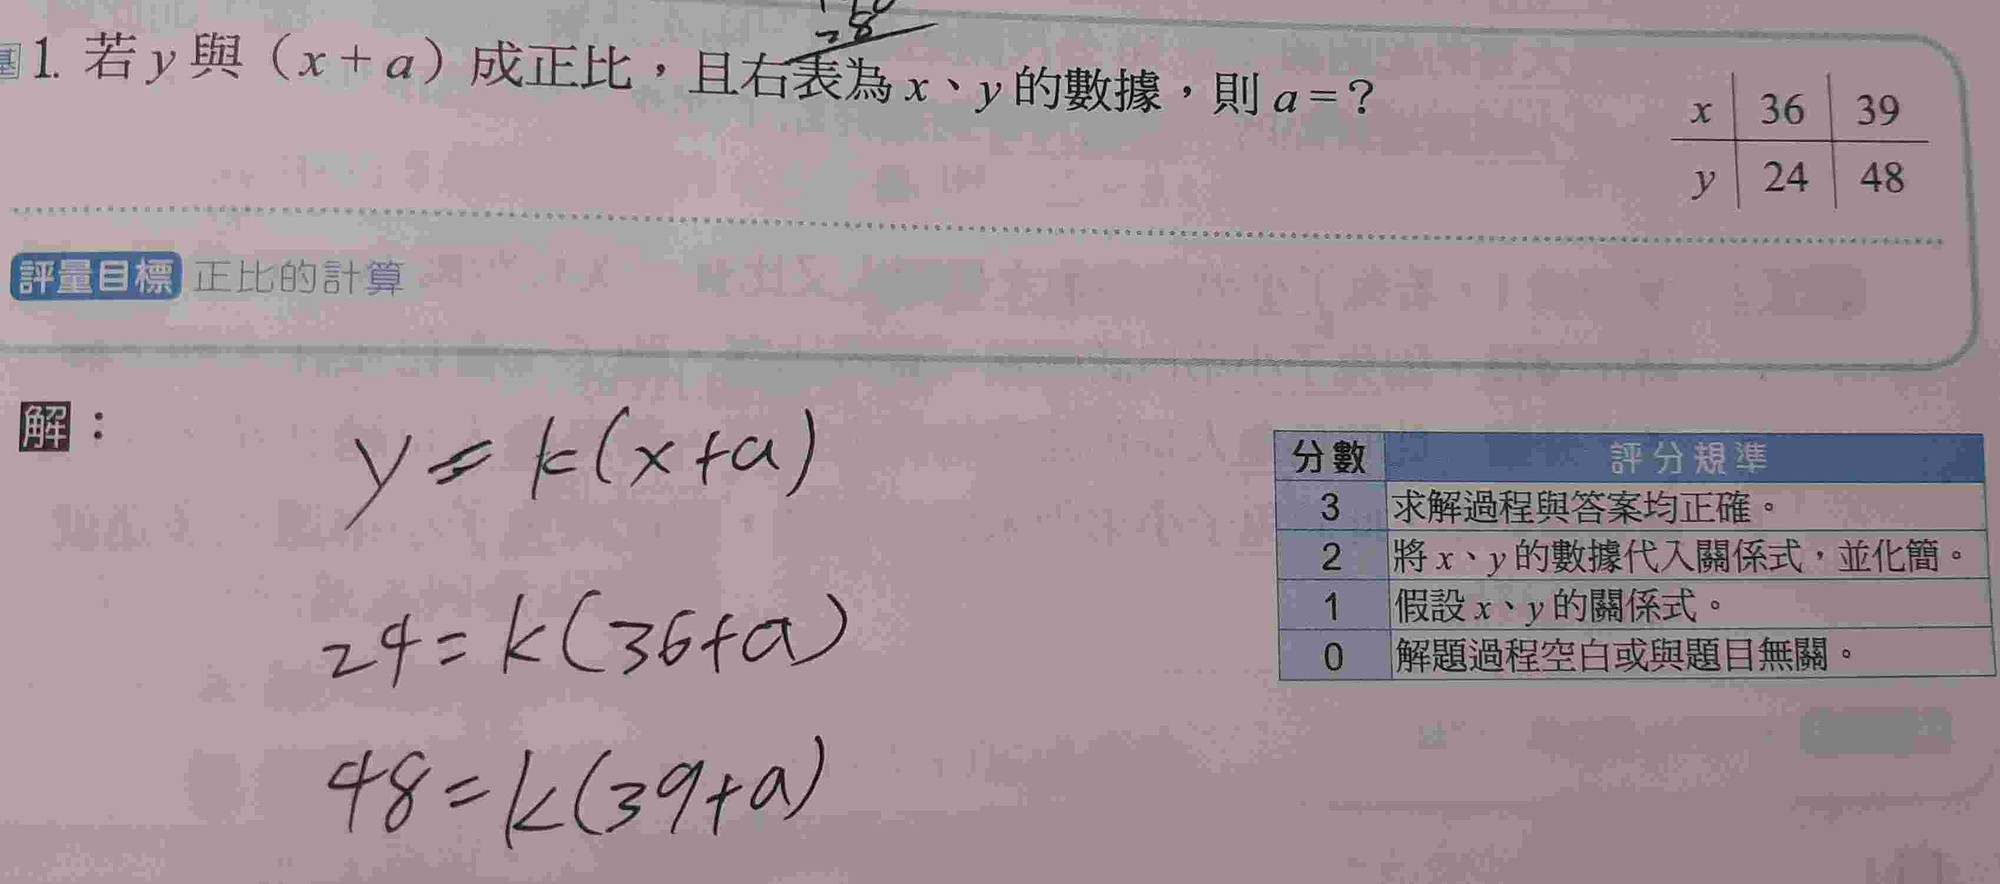 基 1. 若 y 與（x + a）成正比，且右表為 x、y 的數據，則 a = ？
28
x 36 39
y 24 48
評量目標 正比的計算
解：
y = k(x+a)
24 = k(36+a)
48 = k(39+a)
分數 評分規準
3 求解過程與答案均正確。
2 將 x、y 的數據代入關係式，並化簡。
1 假設 x、y 的關係式。
0 解題過程空白或與題目無關。